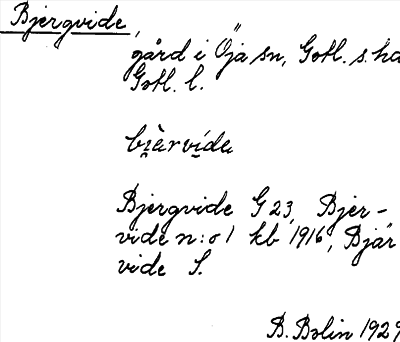 Bjergvide,
gård i Öja sn, Gotl. s. hd
Gotl. l.
bi̯àrví̯da
Bjergvide G 23, Bjer-
vide n:o 1 kb 1916, Bjär
vide S.
B. Bolin 1929